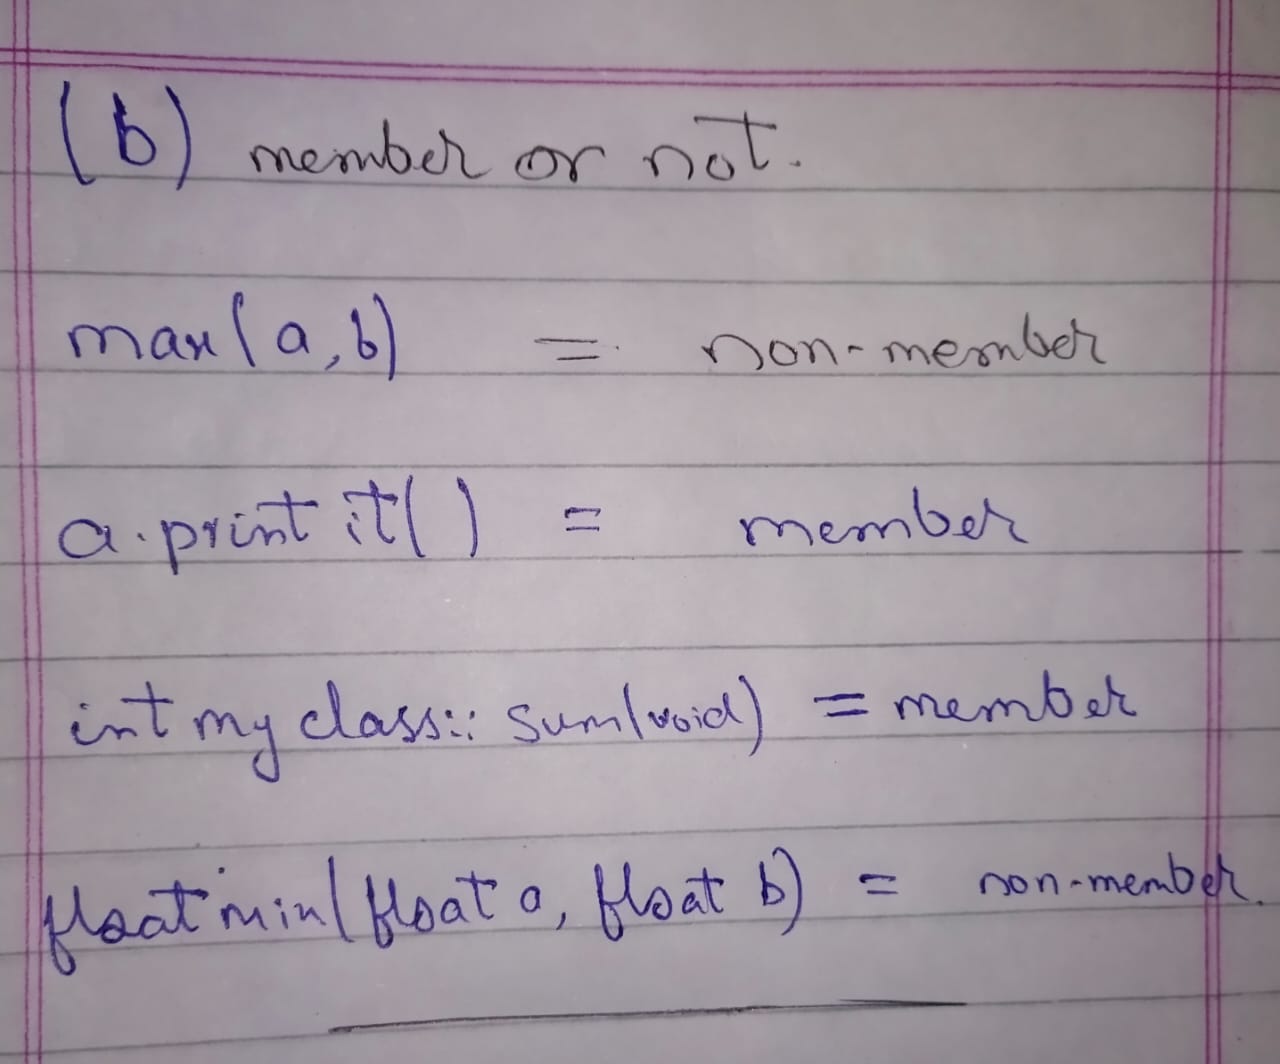 (b) member or not.
max(a,b) = non-member
a.print it() = member
int my class:: sum(void) = member
float min(float a, float b) = non-member.